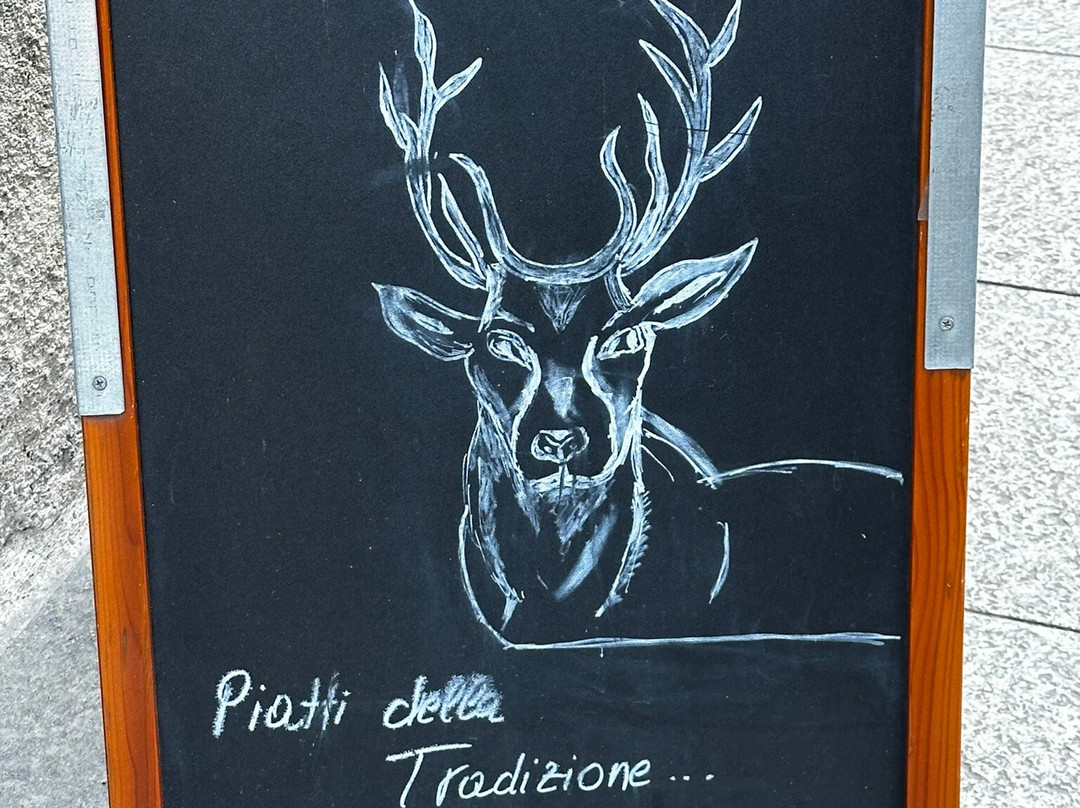 Piatti della
Tradizione...